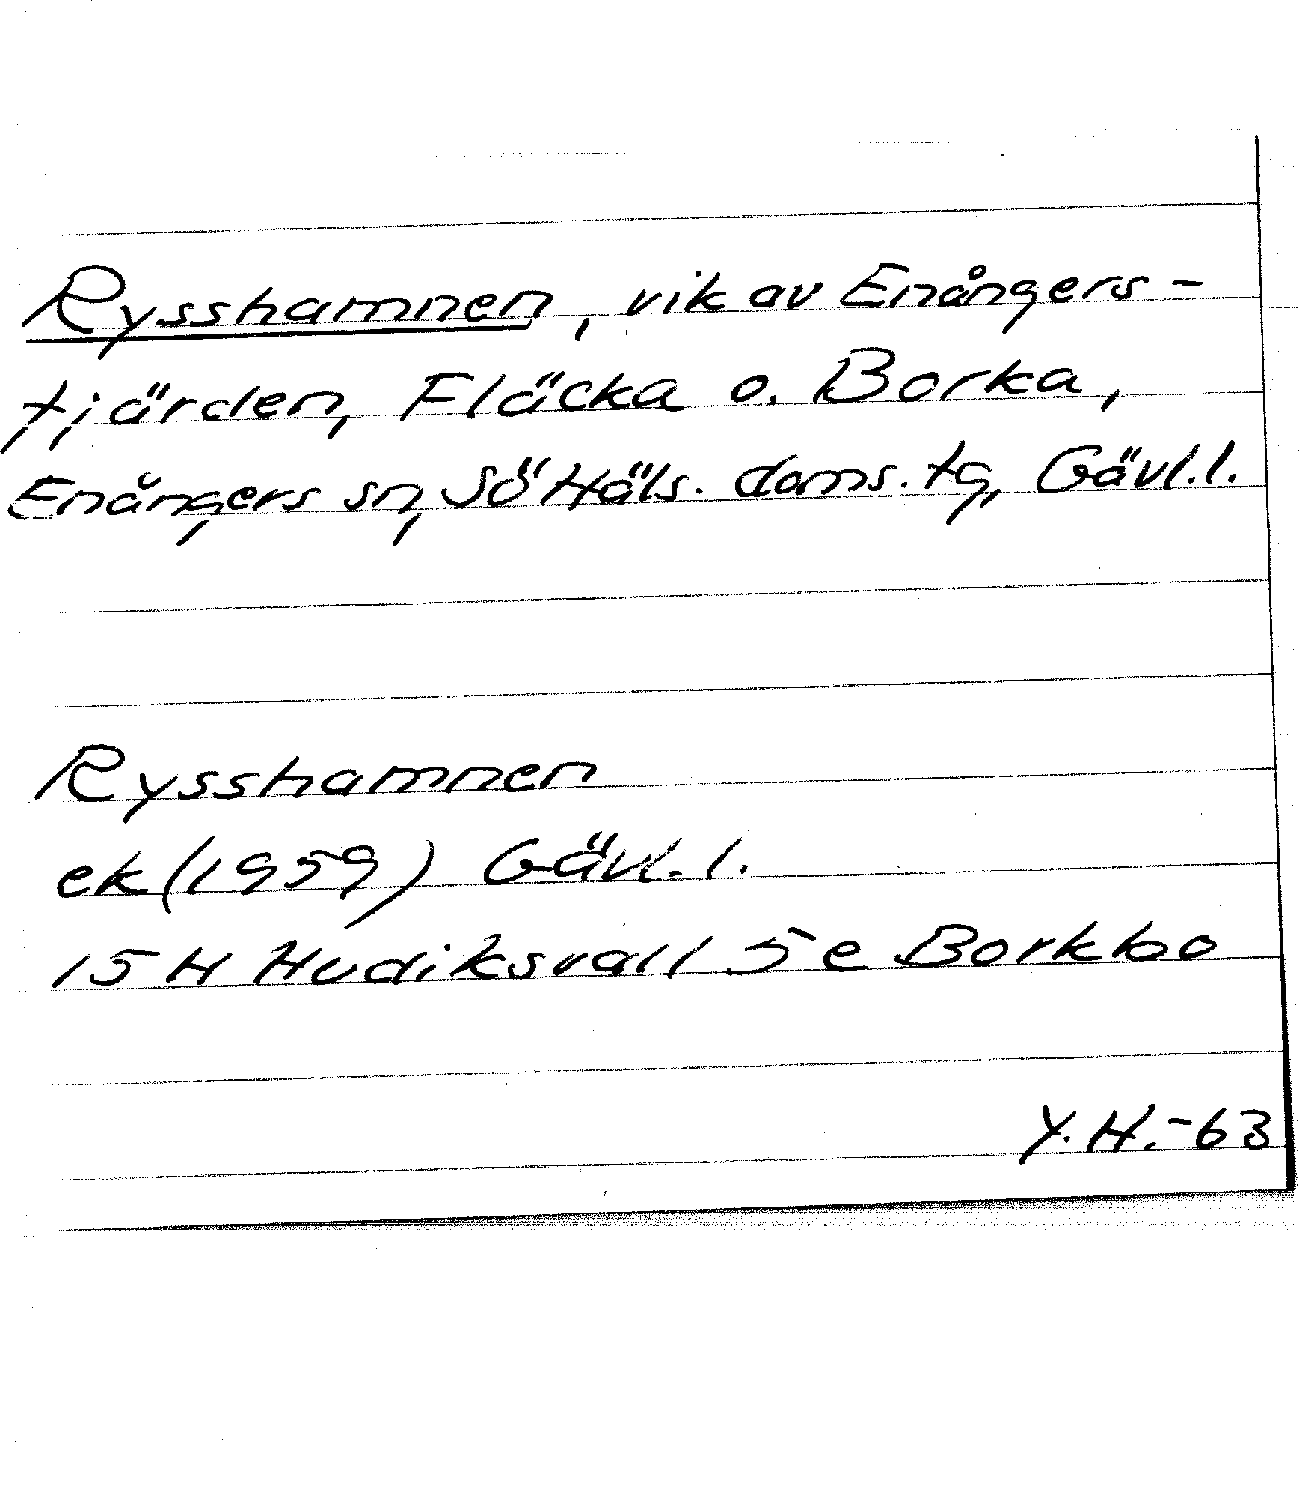 Rysshamnen, vik av Enångers-
fjärden, Fläcka o. Borka,
Enångers sn, Sö Häls. doms. tg, Gävl.l.
Rysshamnen
ek (1959) Gävl.l.
15 H Hudiksvall 5 e Borkbo
Y.H.-63